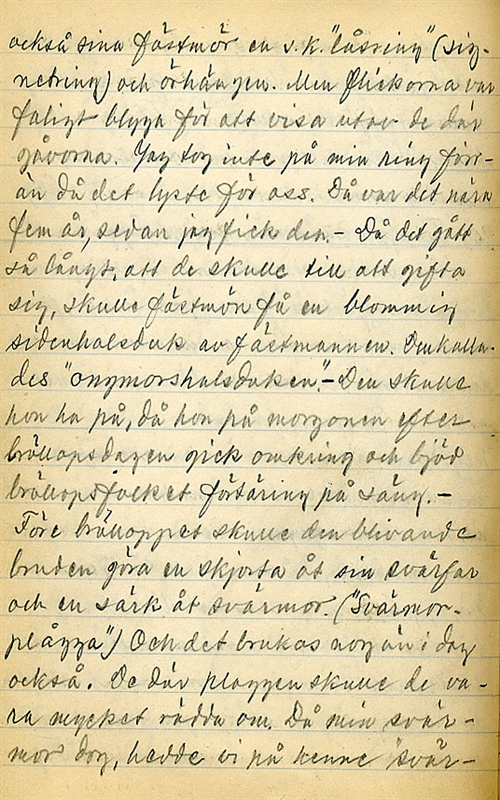 också sina fästmör en s.k. "låsring" (sig-
netring) och örhängen. Men flickorna var
faligt blyga för att visa utav de där
gåvorna. Jag tog inte på min ring förr-
än då det lyste för oss. Då var det nära
fem år, sedan jag fick den. - Då det gått
så långt, att de skulle till att gifta
sig, skulle fästmön få en blommig
sidenhalsduk av fästmannen. Den kalla-
des "ongmorshalsduken". - Den skulle
hon ha på, då hon på morgonen efter
bröllopsdagen gick omkring och bjöd
bröllopsfolket förtäring på säng. -
Före brölloppet skulle den blivande
bruden göra en skjorta åt sin svärfar
och en särk åt svärmor. ("Svärmor-
plågga") Och det brukas nog än i dag
också. De där plaggen skulle de va-
ra mycket rädda om. Då min svär-
mor dog, hadde vi på henne "svär-